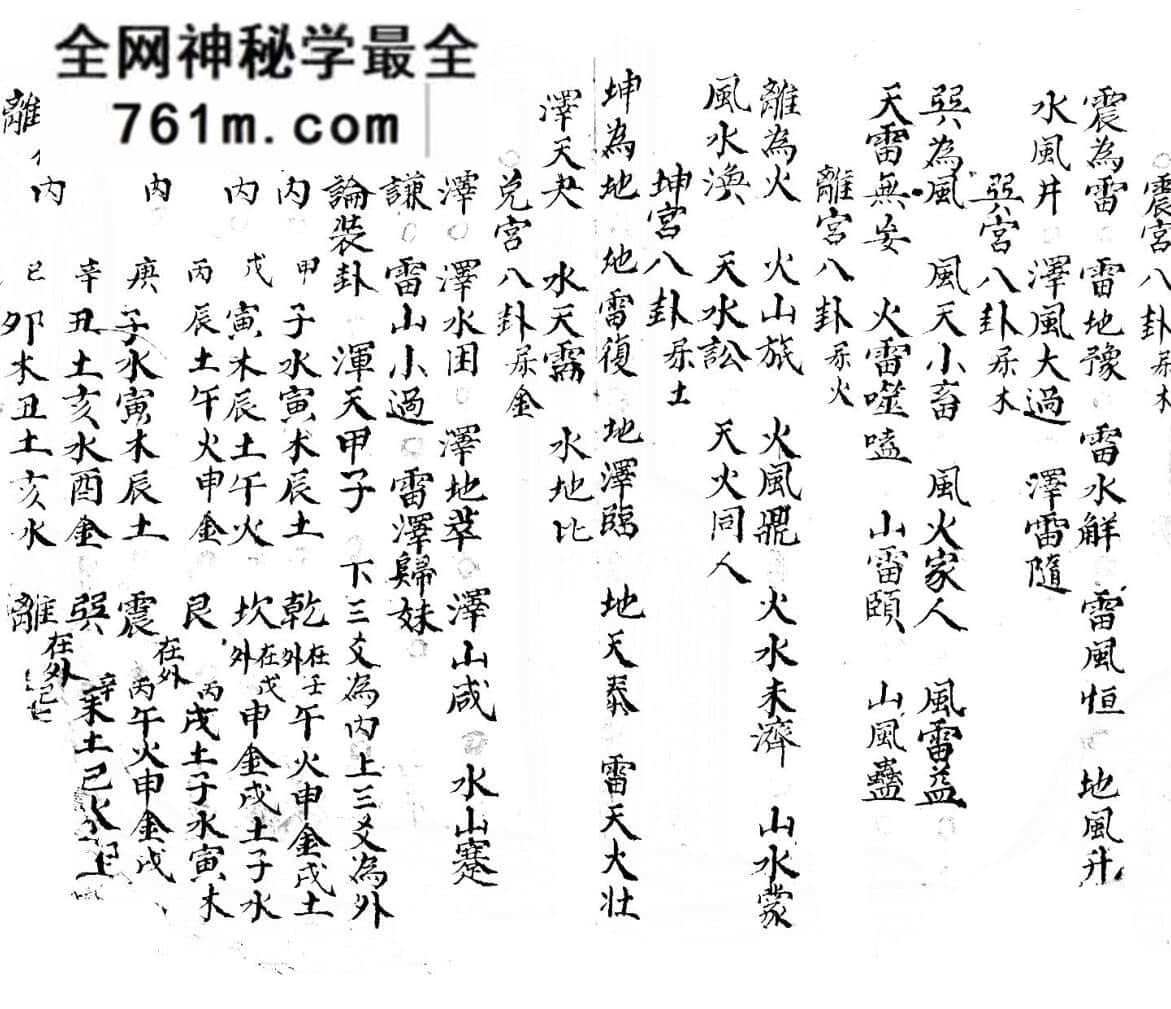 全网神秘学最全
761m.com
震宮八卦屬木
震為雷 雷地豫 雷水解 雷風恒 地風升
水風井 澤風大過 澤雷隨
巽宮八卦屬木
巽為風 風天小畜 風火家人 風雷益
天雷無妄 火雷噬嗑 山雷頤 山風蠱
離宮八卦屬火
離為火 火山旅 火風鼎 火水未濟 山水蒙
風水渙 天水訟 天火同人
坤宮八卦屬土
坤為地 地雷復 地澤臨 地天泰 雷天大壯
澤天夬 水天需 水地比
兌宮八卦屬金
澤 澤水困 澤地萃 澤山咸 水山蹇
謙 雷山小過 雷澤歸妹
論裝卦 渾天甲子 下三爻為內上三爻為外
內 甲子水寅木辰土 乾在外壬午火申金戌土
內 戊寅木辰土午火 坎在外戊申金戌土子水
丙辰土午火申金 艮 丙戌土子水寅木
內 庚子水寅木辰土 震在外丙午火申金戌
辛丑土亥水酉金 巽 辛未土巳火
內 在外
離 己卯木丑土亥水 離